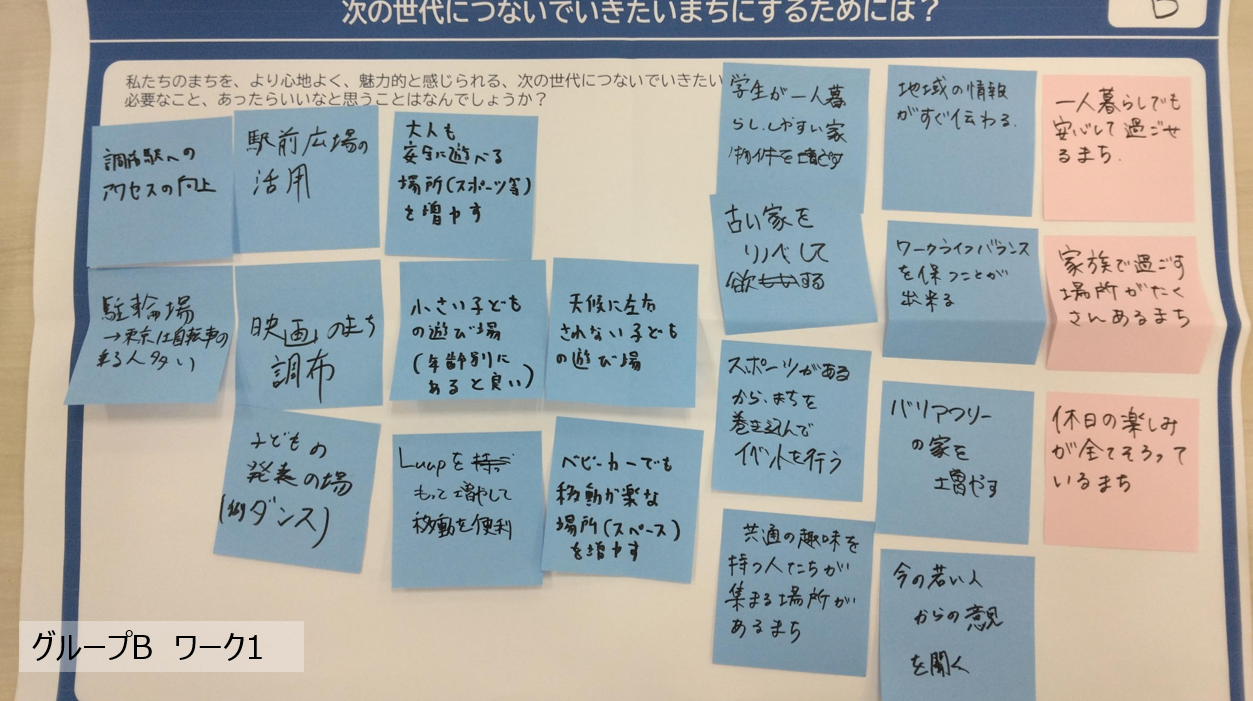 次の世代につないでいきたいまちにするためには？
B
私たちのまちを、より心地よく、魅力的と感じられる、次の世代につないでいきたい
必要なこと、あったらいいなと思うことはなんでしょうか？
調布駅への
アクセスの向上
駅前広場の
活用
大人も
安全に遊べる
場所(スポーツ等)
を増やす
駐輪場
→東京は自転車の
来る人多い
映画のまち
調布
小さい子ども
の遊び場
(年齢別に
あると良い)
天候に左右
されない子ども
の遊び場
子どもの
発表の場
(例ダンス)
Luupを
もって増やして
移動を便利
ベビーカーでも
移動が楽な
場所(スペース)
を増やす
学生が一人暮
らししやすい家
物件を増やす
古い家を
リノベして
欲
スポーツがある
から、まちを
巻き込んで
イベントを行う
共通の趣味を
持つ人たちが
集まる場所が
あるまち
地域の情報
がすぐ伝わる.
ワークライフバランス
を保つことが
出来る
バリアフリー
の家を
増やす
今の若い人
からの意見
を聞く
一人暮らしでも
安心して過ごせ
るまち.
家族で過ごす
場所がたく
さんあるまち
休日の楽しみ
が全てそろって
いるまち
グループB ワーク1